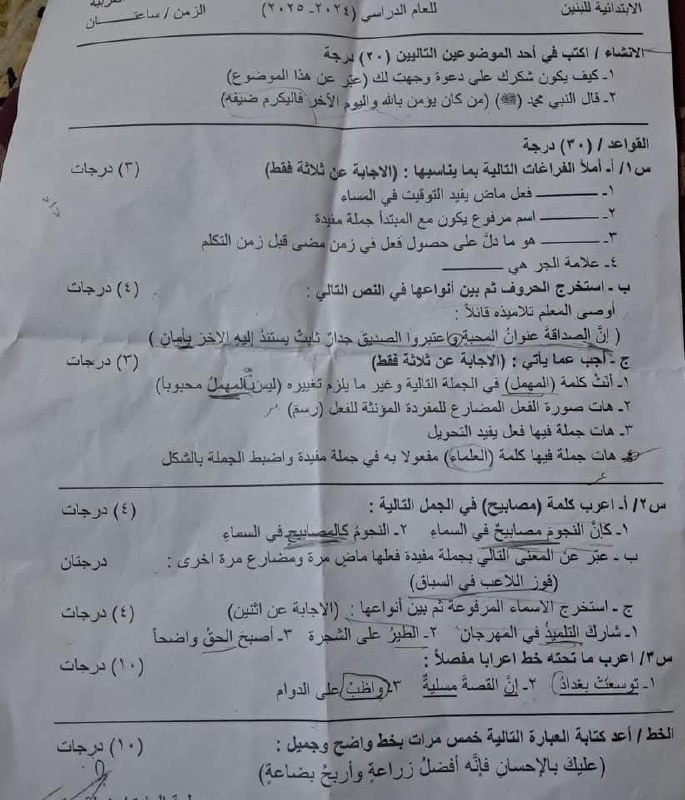 الابتدائية للبنين للعام الدراسي (٢٠٢٤-٢٠٢٥) الزمن / ساعتان
الانشاء / اكتب في أحد الموضوعين التاليين (٢٠) درجة
١- كيف يكون شكرك على دعوة وجهت لك (عبّر عن هذا الموضوع)
٢- قال النبي محمد (ﷺ) (من كان يؤمن بالله واليوم الآخر فاليكرم ضيفه)
القواعد / (٣٠) درجة
س١/ أ- أملأ الفراغات التالية بما يناسبها : (الاجابة عن ثلاثة فقط) (٣) درجات
١- ــــــــ فعل ماض يفيد التوقيت في المساء
٢- ــــــــ اسم مرفوع يكون مع المبتدأ جملة مفيدة
٣- ــــــــ هو ما دلّ على حصول فعل في زمن مضى قبل زمن التكلم
٤- علامة الجر هي ــــــــ
ب - استخرج الحروف ثم بين أنواعها في النص التالي : (٤) درجات
أوصى المعلم تلاميذه قائلاً :
( إنَّ الصداقةَ عنوانُ المحبة واعتبروا الصديق جدارٌ ثابتٌ يستندُ إليه الاخرَ بأمان )
ج - أجب عما يأتي : (الاجابة عن ثلاثة فقط) (٣) درجات
١- أنثْ كلمة (المهمل) في الجملة التالية وغير ما يلزم تغييره (ليس المهملُ محبوبا)
٢- هات صورة الفعل المضارع للمفردة المؤنثة للفعل (رسمَ)
٣- هات جملة فيها فعل يفيد التحويل
٤- هات جملة فيها كلمة (العلماء) مفعولا به في جملة مفيدة واضبط الجملة بالشكل
س٢/ أ- اعرب كلمة (مصابيح) في الجمل التالية : (٤) درجات
١- كأنَّ النجومَ مصابيحُ في السماء ٢- النجومُ كالمصابيحِ في السماءِ
ب - عبّر عن المعنى التالي بجملة مفيدة فعلها ماضٍ مرة ومضارع مرة اخرى : درجتان
(فوز اللاعب في السباق)
ج - استخرج الاسماء المرفوعة ثم بين أنواعها : (الاجابة عن اثنين) (٤) درجات
١- شاركَ التلميذُ في المهرجان ٢- الطيرُ على الشجرة ٣- أصبحَ الحقُ واضحاً
س٣/ اعرب ما تحته خط اعرابا مفصلاً : (١٠) درجات
١- توسعتْ بغدادُ ٢- إنَّ القصةَ مسليةٌ ٣- واظبْ على الدوام
الخط / أعد كتابة العبارة التالية خمس مرات بخط واضح وجميل : (١٠) درجات
(عليكَ بالإحسانِ فإنَّه أفضلُ زراعةٍ وأربحُ بضاعةٍ)